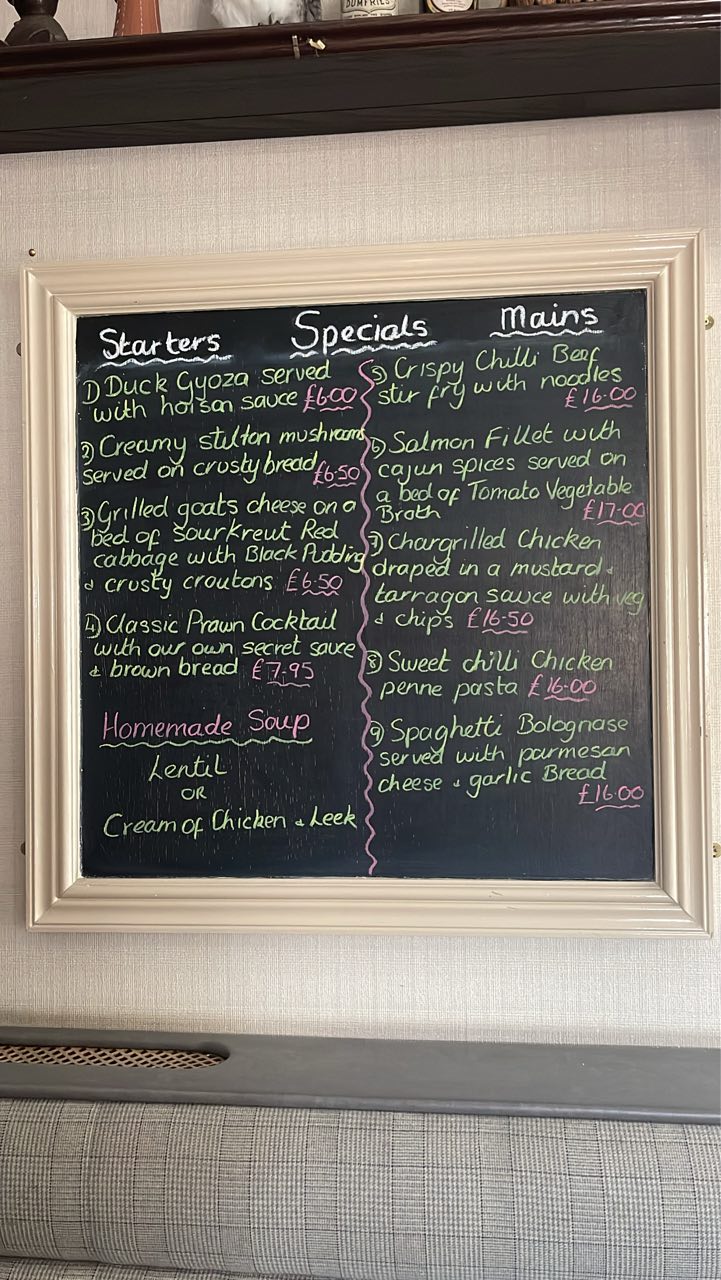 DUMFRIES
Starters
Specials
Mains
1) Duck Gyoza served
with hoisan sauce £6.00
2) Creamy stilton mushrooms
served on crusty bread £6.50
3) Grilled goats cheese on a
bed of Sourkreut Red
cabbage with Black Pudding
& crusty croutons £6.50
4) Classic Prawn Cocktail
with our own secret sauce
& brown bread £7.95
Homemade Soup
Lentil
OR
Cream of Chicken & Leek
5) Crispy Chilli Beef
stir fry with noodles
£16.00
6) Salmon Fillet with
cajun spices served on
a bed of Tomato Vegetable
Broth £17.00
7) Chargrilled Chicken
draped in a mustard &
tarragon sauce with veg
& chips £16.50
8) Sweet chilli Chicken
penne pasta £16.00
9) Spaghetti Bolognase
served with parmesan
cheese & garlic Bread
£16.00